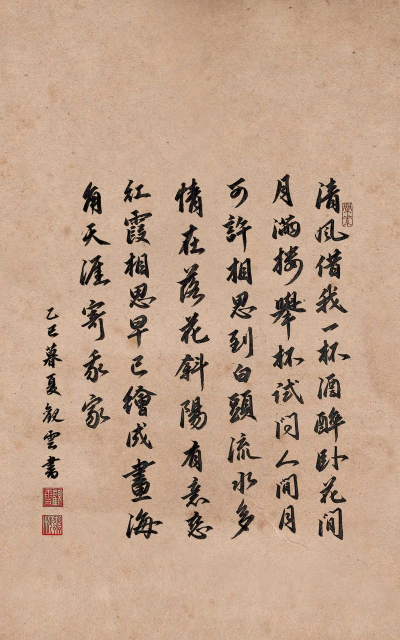 清风借我一杯酒醉卧花间
月满楼举杯试问人间月
可許相思到白頭流水多
情在落花斜陽有意恋
红霞相思早已繪成畫海
角天涯寄我家
乙巳暮夏观雲書